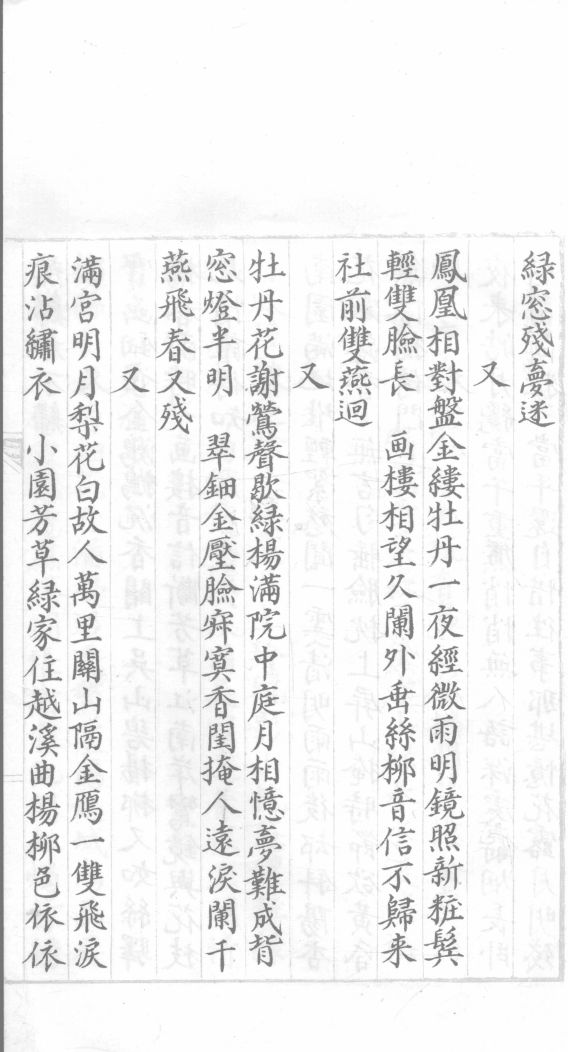 緑窓殘夢迷
又
鳳凰相對盤金縷牡丹一夜經微雨明鏡照新粧鬂
輕雙臉長　画樓相望久闌外垂絲柳音信不歸来
社前雙燕迴
又
牡丹花謝鶯聲歇緑楊滿院中庭月相憶夢難成背
窓燈半明　翠鈿金壓臉寂寞香閨掩人遠淚闌干
燕飛春又殘
又
滿宮明月梨花白故人萬里關山隔金鴈一雙飛淚
痕沾繡衣　小園芳草緑家住越溪曲楊柳色依依